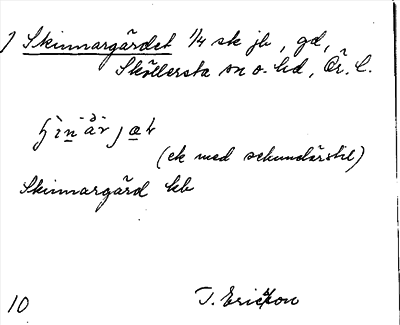 ) Skinnargärdet 1/4 sk jb, gd,
Sköllersta sn o. hd, Ör. l.
(ek med sekundärstil)
Skinnargärd kb
10 T. Ericsson